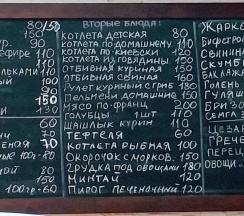 80/150
150
90
ефире 110
110
льками 110
110
90
150
150
130
60
70
70
100гр-80
150
100гр-60
Вторые блюда:
котлета детская 80
котлета по домашнему 110
котлета по киевски 120
котлета из говядины 150
отбивная куриная 150
отбивная свиная 160
Рулет куриный с гриб 180
пельмени домашние 150
Мясо по-франц 200
Голубцы 1шт 110
Шашлык курин
Фетеля 60
котлета рыбная 100
Окорочок с морков. 150
Грудка под овощами 180
Минтай 120
Пирог печеночный 120
Жаркое
Бифстрог
Свинина
Скумбр
Баклажан
Голень
Гуляш
Бризо
Семга
Цезар
Гречес
Перец
Овощ